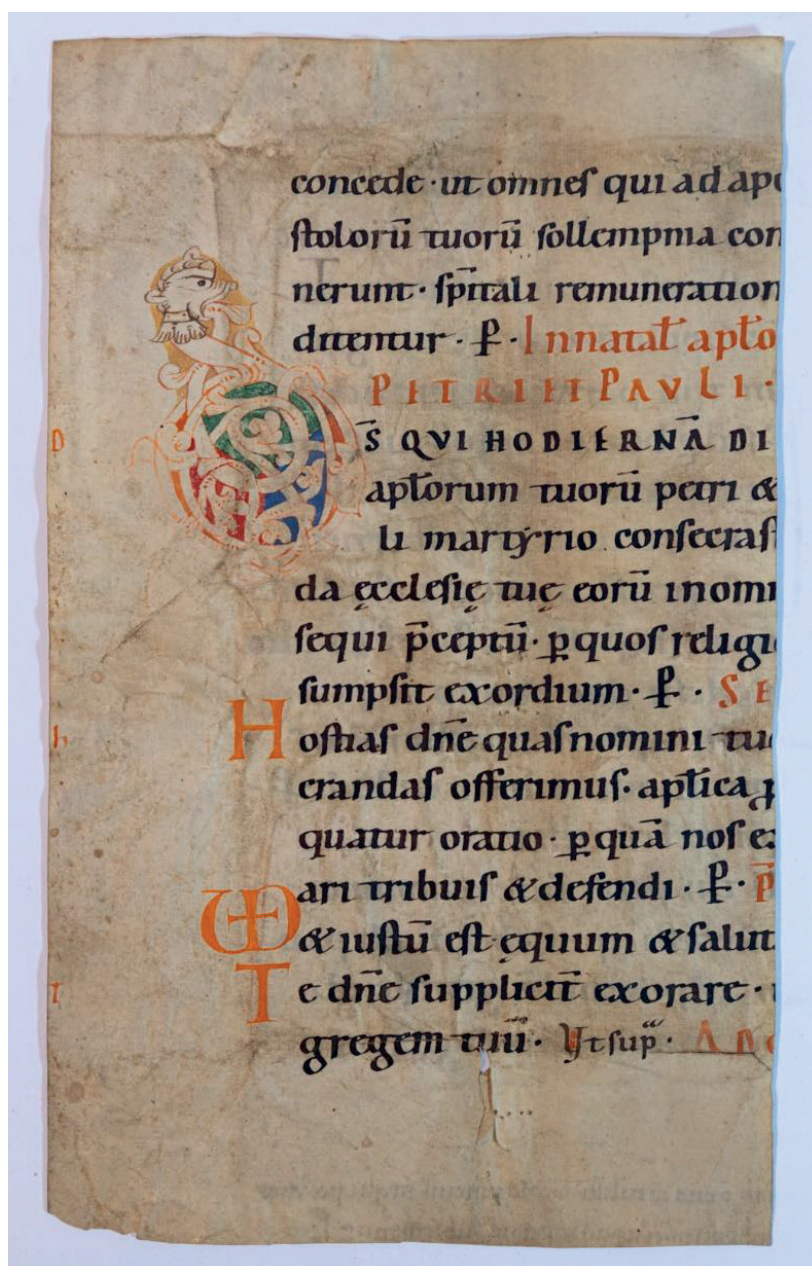 concede · ut omnes qui ad apo
stolorū tuorū sollempnia con
nerunt · sp̄itali remuneration
ditentur · P̲ · In natal̄ apl̄o
PETRI ET PAVLI ·
D S̄ QVI HODIERNĀ DI
apl̄orum tuorū petri &
li martyrio consecras
da ęcclesię tuę eorū in omni
sequi p̄ceptū · ꝑ quos religi
sumpsit exordium · P̲ · SE
h Hostias dn̄e quas nomini tu
crandas offerimus · apl̄ica
quatur oratio · ꝑ quā nos e
ari tribuis & defendi · P̲ · P̄
& iustū est ęquum & salut
T Te dn̄e supplicit̄ exorare ·
gregem tuū · Vt sup̄ · AD